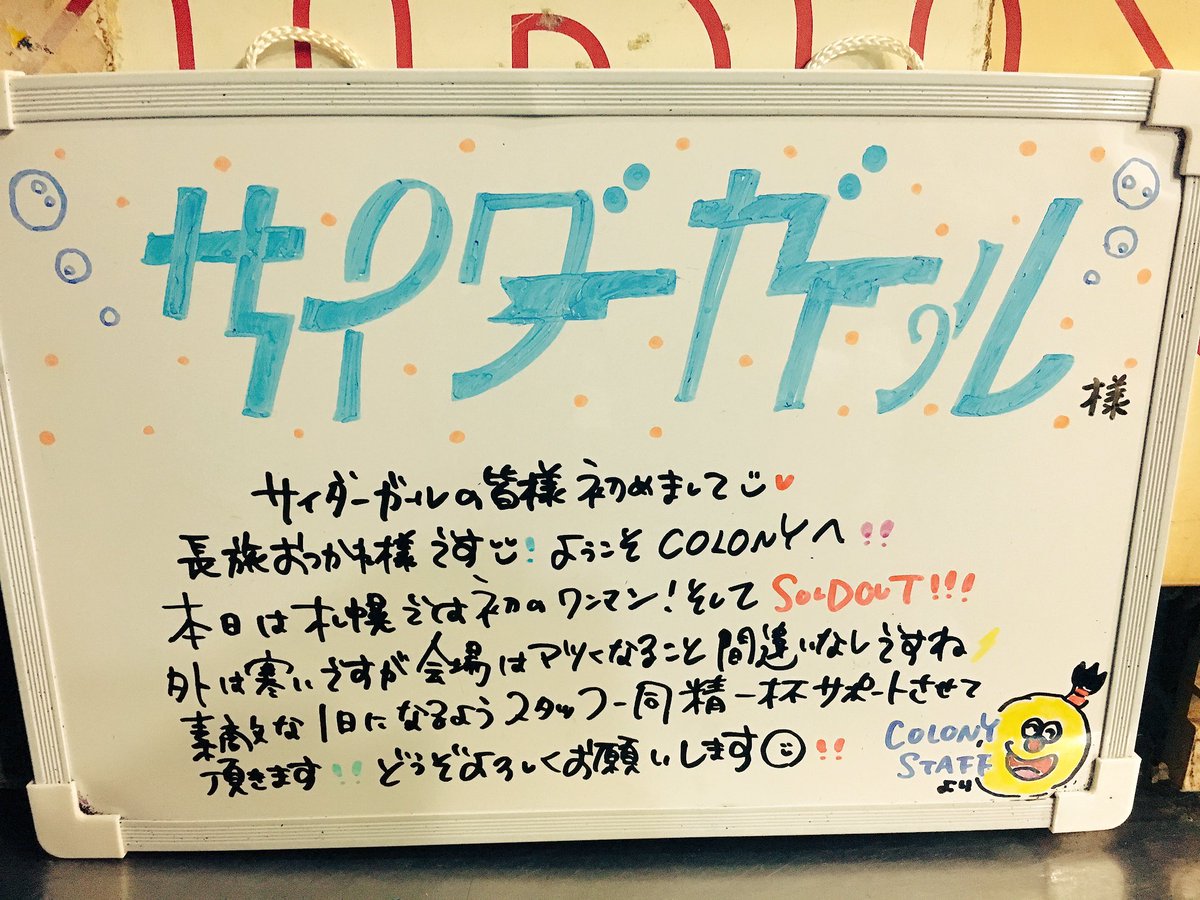 サイダーガール様
サイダーガールの皆様初めまして
長旅おつかれ様です!ようこそCOLONYへ!!
本日は札幌では初のワンマン!そしてSOLDOUT!!!
外は寒いですが会場はアツくなること間違いなしですね
素敵な1日になるようスタッフ一同精一杯サポートさせて
頂きます!!どうぞよろしくお願いします!!
COLONY
STAFF
より